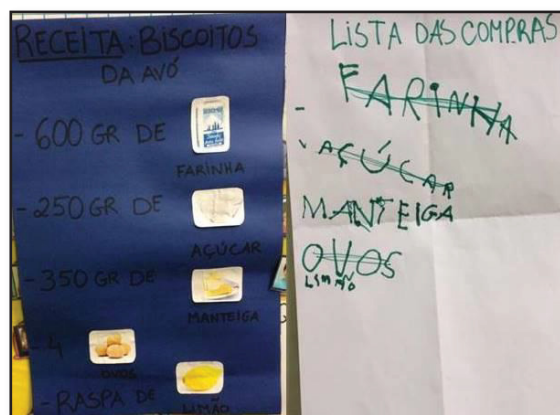 RECEITA: BISCOITOS
DA AVÓ
- 600 GR DE
FARINHA
- 250 GR DE
AÇÚCAR
- 350 GR DE
MANTEIGA
- 4
OVOS
- RASPA DE
LIMÃO
LISTA DAS COMPRAS
- FARINHA
- AÇÚCAR
MANTEIGA
OVOS
LIMÃO